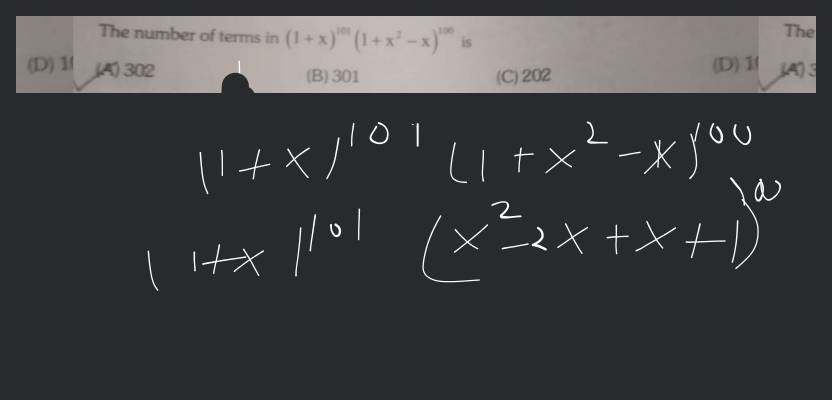 The number of terms in (1+x)^101 (1+x^2-x)^100 is The
(D) 1 (A) 302 (B) 301 (C) 202 (D) 1 (A) 3
(1+x)^101 (1+x^2-x)^100
(1+x)^101 (x^2-2x+x+1)^100